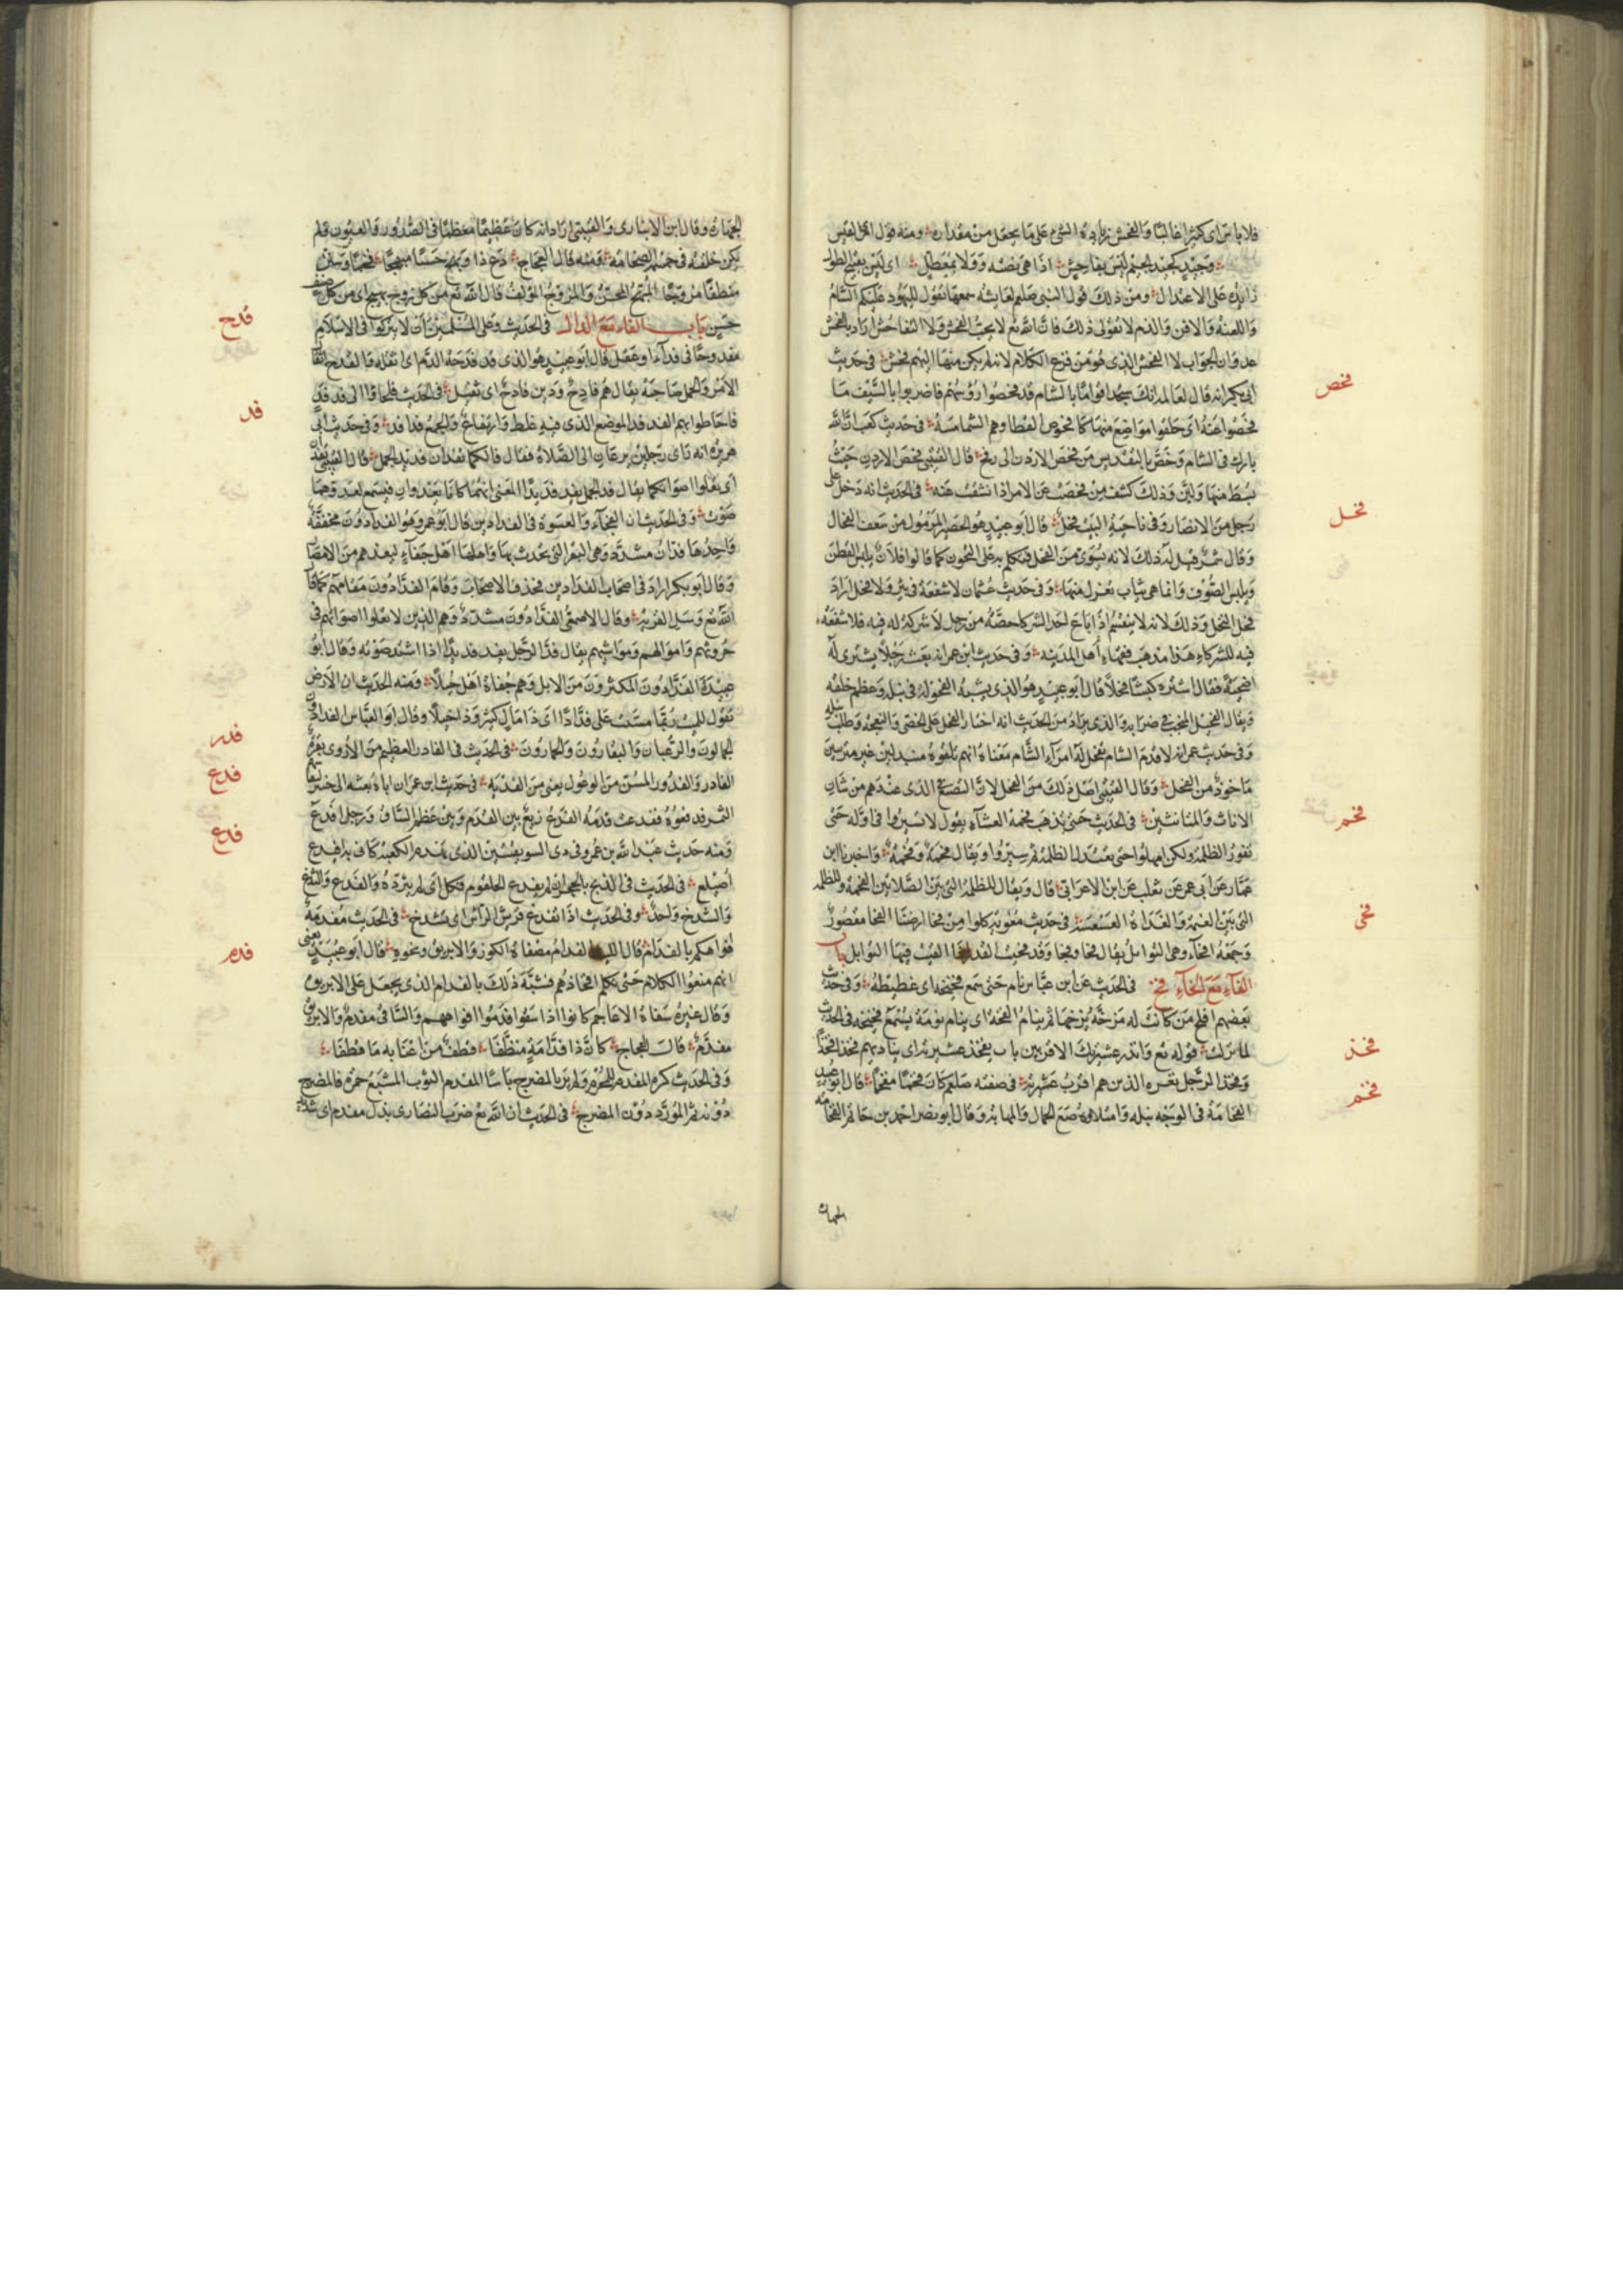 فلا باس اى كثيرا غالبا والفحش زيادة الشئ على ما يجعل من مقداره ومنه قول امرئ القيس
وجيد كجيد الريم ليس بفاحش اذا هى نصته ولا بمعطل اى ليس بقبيح الطول
زايد على الاعتدال ومن ذلك قول النبى صلعم لعايشه سمعها تقول لليهود عليكم السام
واللعنة والافن والذم لا تقولى ذلك فان الله تع لا يحب الفحش ولا التفاحش اراد بالفحش
عدوان الجواب لا الفحش الذى هو من قذع الكلام لانه لم يكن منها اليهم فحش فى حديث
فحص
ابى بكر انه قال لعامله انك ستجد اقواما بالشام قد فحصوا رؤسهم فاضربوا بالسيف ما
فحصوا عنه اى حلقوا مواضع منها كافحوص القطا وهم الشمامسة فى حديث كعب ان الله
بارك فى الشام وخص بالتقديس من فحص الاردن الى رفح قال القتيبى فحص الاردن حيث
بسط منها ولين وذلك كشف من فحصت عن الامر اذا نشفت عنه فى الحديث انه دخل على
فحل
رجل من الانصار وفى ناحية البيت فحل قال ابو عبيد هو الحصير المرمول من سعف الفحال
وقال شمر قيل له ذلك لانه يسوى من الفحل فتكلم به على التجوز كما قالوا فلان يلبس القطن
ويلبس الصوف وانما هى ثياب تغزل منها وفى حديث عثمان لا شفعة فى بئر ولا فحل اراد
فحل النخل وذلك لانه لا ينقسم اذا باع احد الشركا حصته من رجل لا شركة له فيه فلا شفعة
فيه للشركاء هذا مذهب فقهاء أهل المدينه وفى حديث ابن عمر انه بعث رجلا يشترى له
اضحية فقال اشتره كبشا فحلا قال ابو عبيد هو الذى يشبه الفحولة فى نبله وعظم خلقه
ويقال الفحيل المنجب فى ضرابه والذى يراد من الحديث انه اختار الفحل على الخصى والنعجة وطلب نبله
وفى حديث عمر انه لما قدم الشام تفحل له امراء الشام معناه انهم تلقوه متبذلين غير متزينين
ماخوذ من الفحل وقال القتيبى اصل ذلك من الفحل لان التصنع الذى عندهم من شان
فحم
الاناث والمتانثين فى الحديث حتى تذهب فحمة العشاء يقول لا تسيروا فى اوله حتى
تفور الظلمة ولكن امهلوا حتى تعتدل الظلمة ثم سيروا ويقال فحمة وفحمة واخبرنا ابن
عمار عن ابى عمر عن ثعلب عن ابن الاعرابى قال ويقال للظلمة التى بين الصلاتين الفحمة وللظلمة
فحى
التى بين العتمة والغداة العسعسة فى حديث معوية كلوا من فحا ارضنا الفحا مقصور
وجمعه افحاء وهى التوابل يقال فحا وفحا وقد فحيت القدر اذا القيت فيها التوابل باب
الفاء مع الخاء فخ فى الحديث عن ابن عباس نام حتى سمع فخيخه اى غطيطه وفى حديث
بعضهم افلح من كانت له مزخه يزخها ثم ينام الفخه اى ينام نومة يسمع فخيخه فى الحديث
فخذ
لما نزلت قوله تع وانذر عشيرتك الاقربين بات يفخذ عشيرته اى يناديهم فخذا فخذا
فخم
وفخذ الرجل نفره الذين هم اقرب عشيرته فى صفته صلعم كان فخما مفخما قال ابو عبيد
الفخامة فى الوجه نبله وامتلاؤه مع الجمال والمهابة وقال ابو نصر احمد بن حاتم الفخامه
الجهارة
الجهارة وقال ابن الانبارى والقتيبى اراد انه كان عظيما معظما فى الصدور والعيون ولم
يكن خلقه فى جسمه الضخامة ومنه قال العجاج دع ذا وبهج حسبا مبهجا فخما وسنن
منطقا مزوجا المبهج المحسن والمزوج المؤلف قال الله تع من كل زوج بهيج اى من كل صنف
قدح
حسن باب الفاء مع الدال فى الحديث وعلى المسلمين ان لا يتركوا فى الاسلام
مفدوحا فى فداء او عقل قال ابو عبيد هو الذى قد فدحه الدم اى اثقله والفدح اثقال
فد
الامر والحمل صاحبه يقال هم فادح ودين فادح اى ثقيل فى الحديث فلجاوا الى فدفد
فاحاطوا بهم الفدفد الموضع الذى فيه غلظ وارتفاع والجمع فدافد وفى حديث ابى
هريرة انه راى رجلين يسرعان الى الصلاة فقال ما لكما تفدان فديد الجمل قال القتيبى تفد
اى تعلوا اصواتكما يقال فد الجمل يفد فديدا المعنى انهما كانا يعدوان فيسمع لعدوهما
صوت وفى الحديث ان الجفاء والقسوة فى الفدادين قال ابو عمرو هو الفدادون مخففة
واحدها فدان مشدد وهى البقر التى يحرث بها واهلها اهل جفاء لبعدهم من الامصار
وقال ابو بكر اراد فى اصحاب الفدادين فحذف الاصحاب واقام الفدادون مقامهم كما قال
الله تع وسئل القرية وقال الاصمعى الفدادون مشددة وهم الذين تعلوا اصواتهم فى
حروثهم واموالهم ومواشيهم يقال فد الرجل يفد فديدا اذا اشتد صوته وقال ابو
عبيدة الفدادون المكثرون من الابل وهم جفاة اهل خيلاء ومنه الحديث ان الارض
تقول للميت ربما مشيت على فدادا اى ذا مال كثير وذا خيلاء وقال ابو العباس الفدادون
فدر
الجمالون والرعيان والبقارون والحمارون فى الحديث فى الفادر العظيم من الاروى بقرة
فدع
الفادر والفدور المسن من الوعول يعنى من الفدية فى حديث ابن عمر ان اباه بعثه الى خيبر
الثمر فدفعوه ففدعت قدمه الفدع زيغ بين القدم وبين عظم الساق ورجل افدع
فدغ
ومنه حديث عبد الله بن عمرو فى ذى السويقتين الذى يهدم الكعبة كانى به افيدع
اصيلع فى الحديث فى الذبح بالحجر ان لم يفدع الحلقوم فكل اى لم يثرده والفدغ والثدغ
والشدخ واحد وفى الحديث اذا تفدغ قريش الراس اى تشدخ فى الحديث مفدمة
فدم
افواهكم بالفدام قال الليث الفدام مصفاة الكوز والابريق ونحوه قال ابو عبيد يعنى
انهم منعوا الكلام حتى تكلم افخاذهم فشبه ذلك بالفدام الذى يجعل على الابريق
وقال غيره سقاة الاعاجم كانوا اذا سقوا فدموا افواههم والساقى مفدم والابريق
مفدم قال العجاج كان ذا فدامة منطفا قطف من اعنابه ما قطفا
وفى الحديث كره المفدم للمحرم ولم ير بالمضرج باسا المفدم الثوب المشبع حمرة فالمضرج
دونه ثم المورد دون المضرج فى الحديث ان الله تع ضرب النصارى بذل مفدم اى شديد